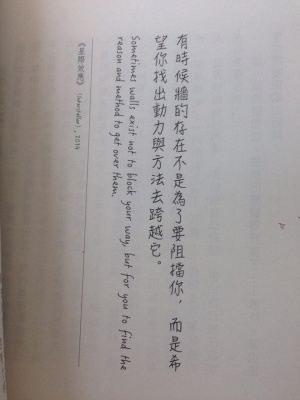 有時候牆的存在不是為了要阻擋你，而是希
望你找出動力與方法去跨越它。
Sometimes walls exist not to block your way, but for you to find the
reason and method to get over them.
《星際效應》 (Interstellar), 2014